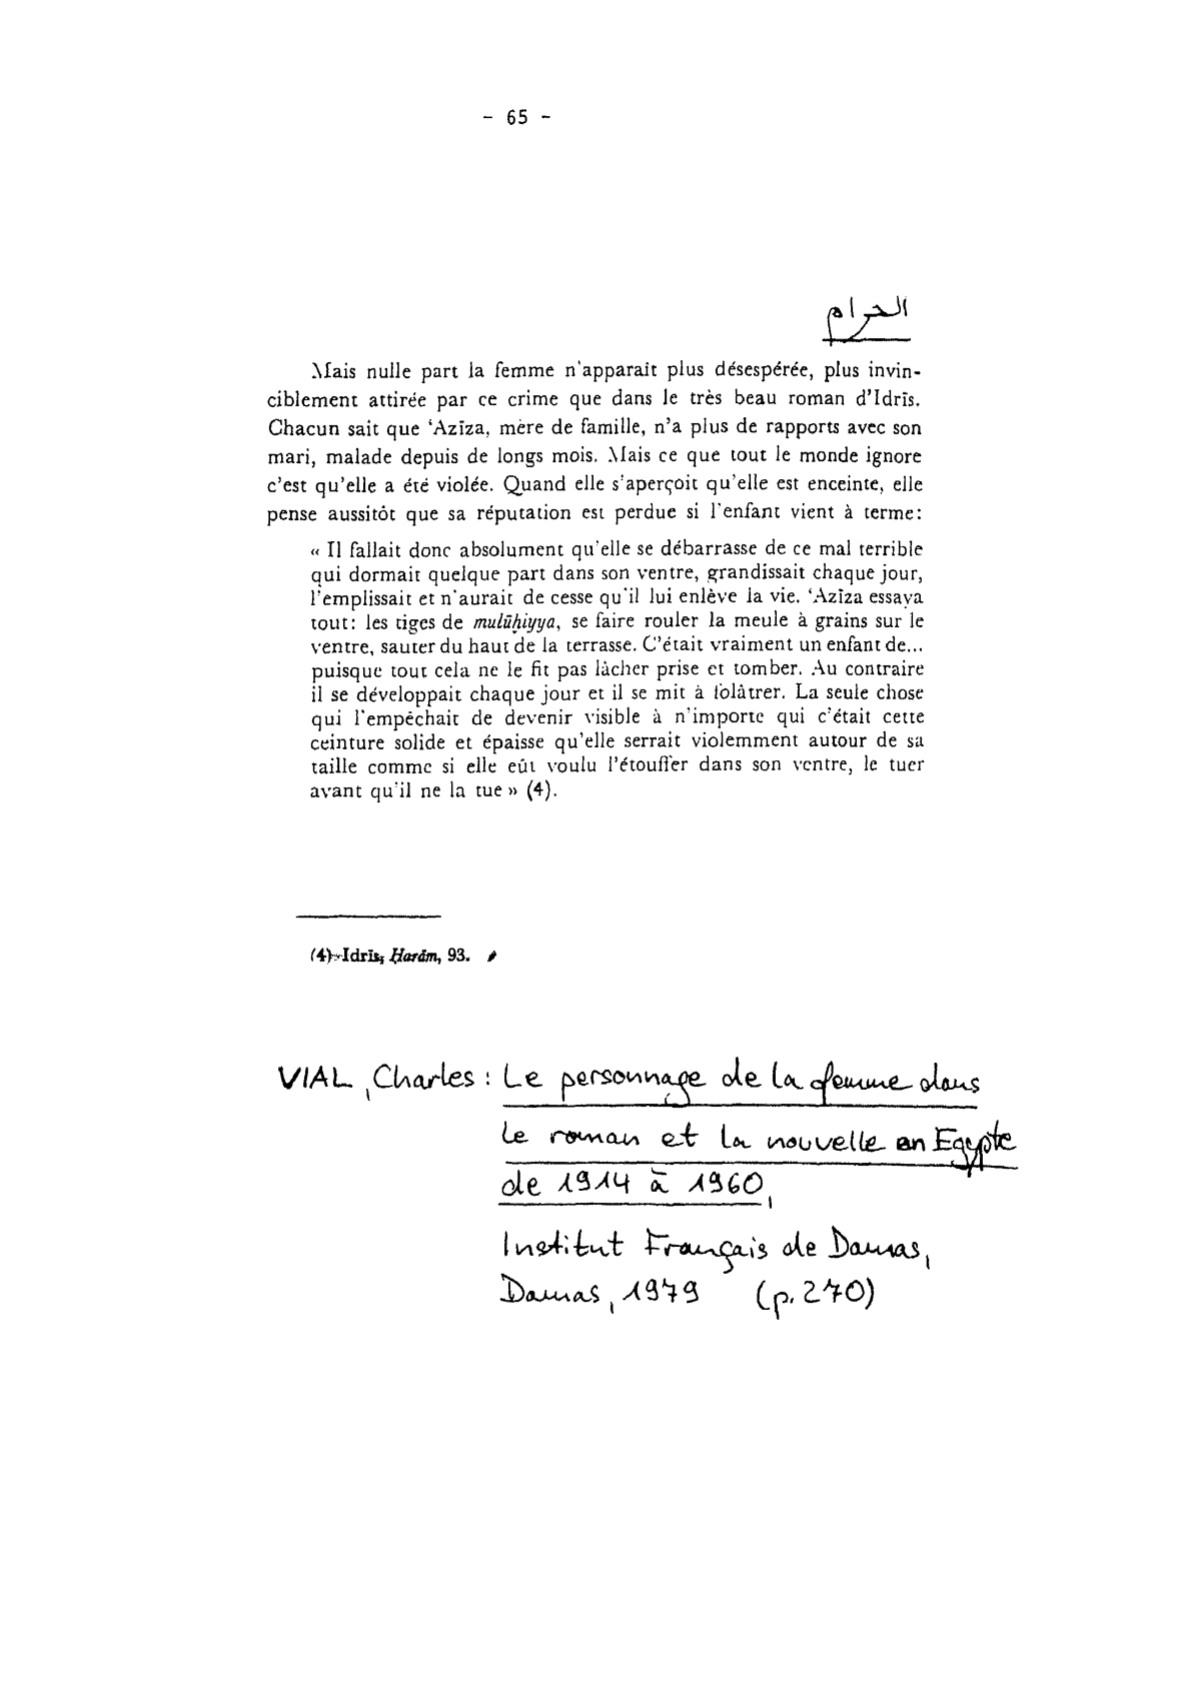 - 65 -
الحرام
Mais nulle part la femme n'apparaît plus désespérée, plus invin-
ciblement attirée par ce crime que dans le très beau roman d'Idrīs.
Chacun sait que ‘Azīza, mère de famille, n'a plus de rapports avec son
mari, malade depuis de longs mois. Mais ce que tout le monde ignore
c'est qu'elle a été violée. Quand elle s'aperçoit qu'elle est enceinte, elle
pense aussitôt que sa réputation est perdue si l'enfant vient à terme:
« Il fallait donc absolument qu'elle se débarrasse de ce mal terrible
qui dormait quelque part dans son ventre, grandissait chaque jour,
l'emplissait et n'aurait de cesse qu'il lui enlève la vie. ‘Azīza essaya
tout: les tiges de mulūḫiyya, se faire rouler la meule à grains sur le
ventre, sauter du haut de la terrasse. C'était vraiment un enfant de...
puisque tout cela ne le fit pas lâcher prise et tomber. Au contraire
il se développait chaque jour et il se mit à folâtrer. La seule chose
qui l'empêchait de devenir visible à n'importe qui c'était cette
ceinture solide et épaisse qu'elle serrait violemment autour de sa
taille comme si elle eût voulu l'étouffer dans son ventre, le tuer
avant qu'il ne la tue » (4).
(4) Idrīs, Ḥarām, 93.
VIAL, Charles : Le personnage de la femme dans
le roman et la nouvelle en Egypte
de 1914 à 1960,
Institut Français de Damas,
Damas, 1979 (p. 270)